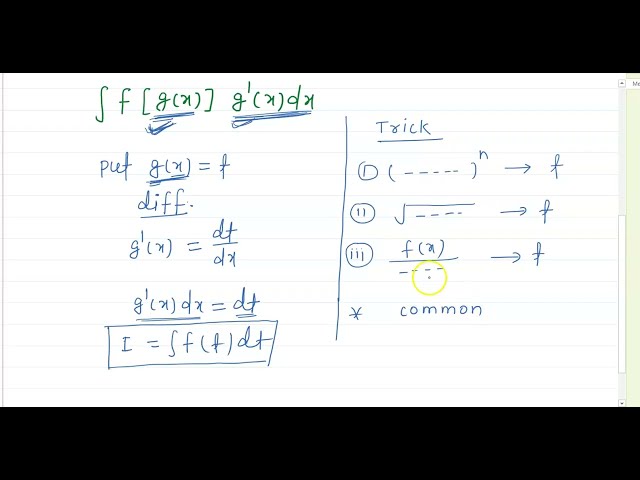 ∫ f [g(x)] g'(x)dx
put g(x) = t
diff.
g'(x) = dt/dx
g'(x)dx = dt
I = ∫f(t)dt
Trick
(i) ( ----- )ⁿ → t
(ii) √---- → t
(iii) f(x)/---- → t
* common